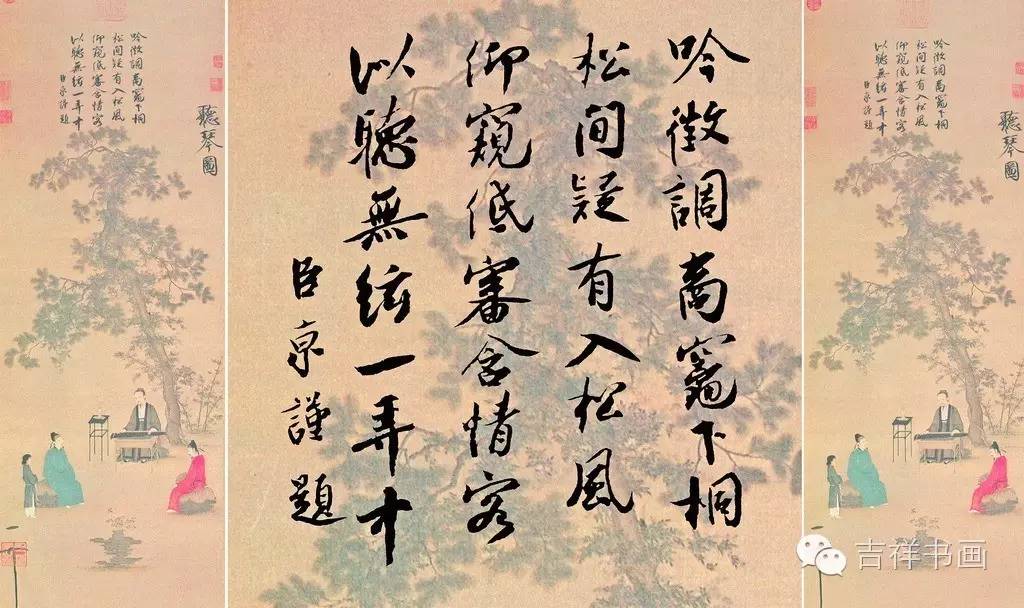 吟徵調商竈下桐
松間疑有入松風
仰窺低審含情客
以聽無絃一弄中
臣京謹題
聽琴圖
吟徵調商竈下桐
松間疑有入松風
仰窺低審含情客
以聽無絃一弄中
臣京謹題
聽琴圖
吟徵調商竈下桐
松間疑有入松風
仰窺低審含情客
以聽無絃一弄中
臣京謹題
吉祥书画